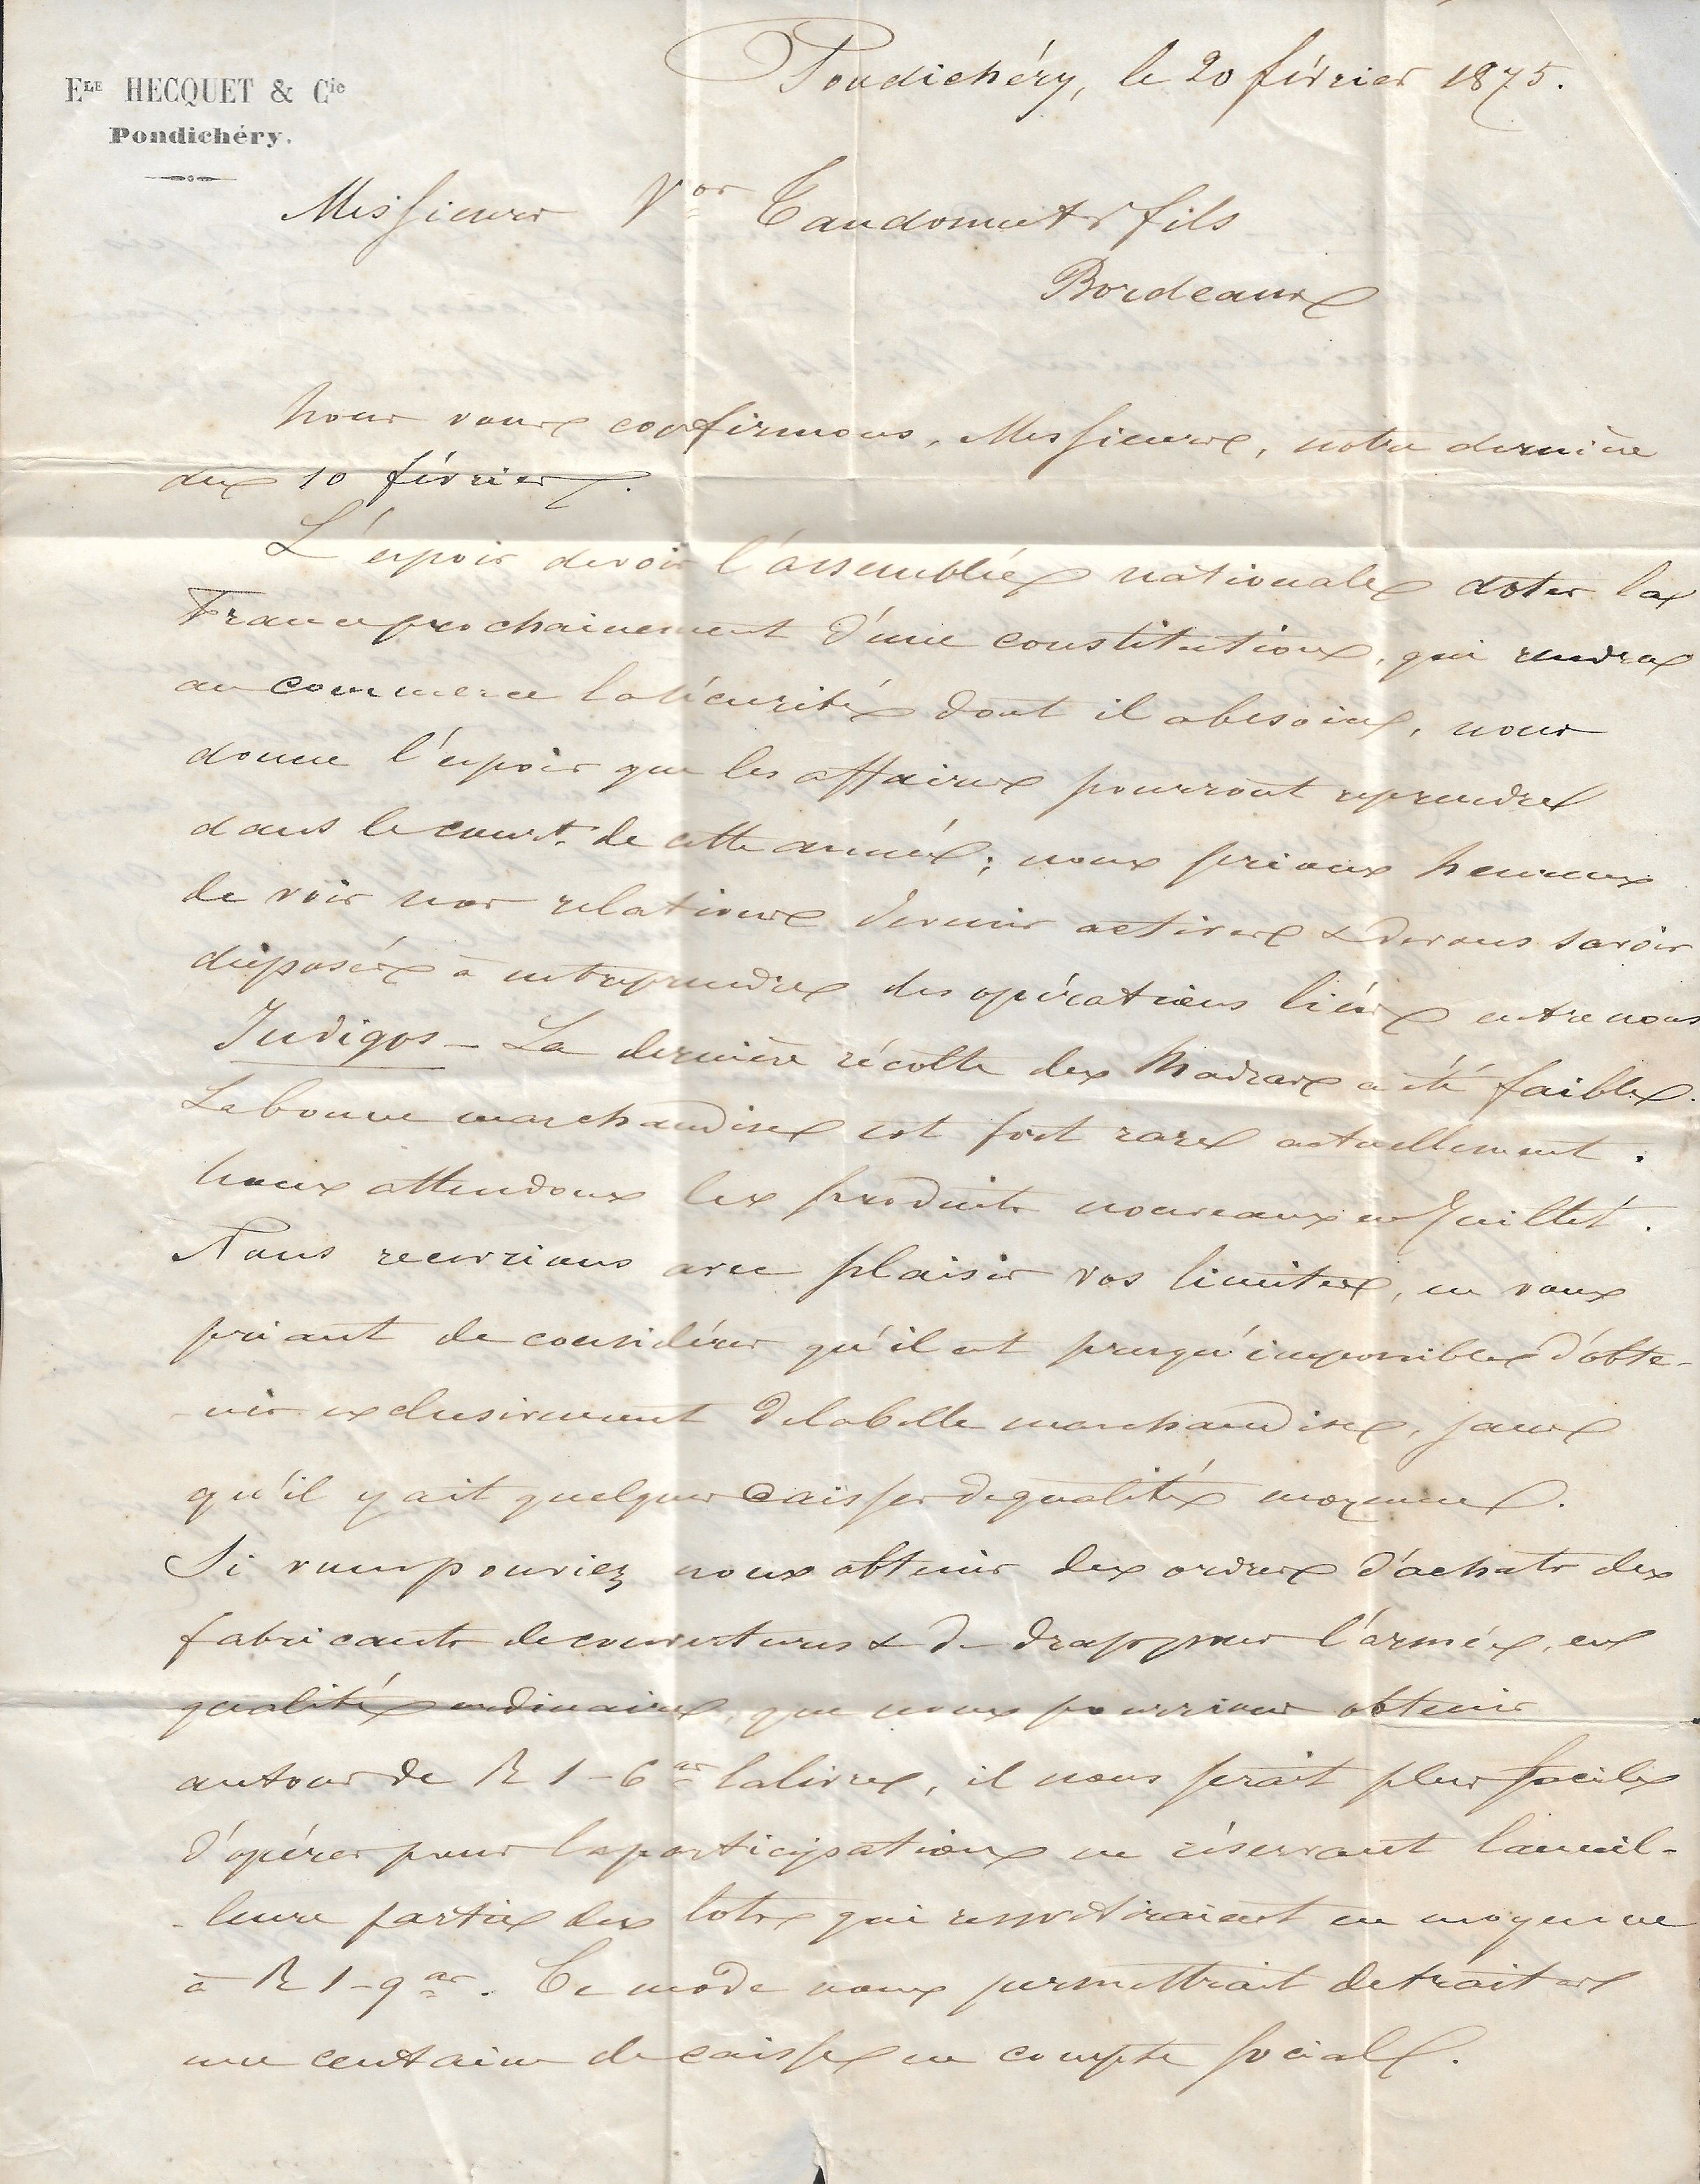 Ele HECQUET & Cie
Pondichéry.
Pondichéry, le 20 février 1875.
Messieurs Vor Tandonnet & fils
Bordeaux
Nous vous confirmons, Messieurs, notre dernière
du 10 février.
L'espoir de voir l'assemblée nationale doter la
France prochainement d'une constitution, qui rendra
au commerce la sécurité dont il a besoin, nous
donne l'espoir que les affaires pourront reprendre
dans le cour't de cette année; nous serions heureux
de voir nos relations devenir actives & de vous savoir
disposés à entreprendre des opérations liées entre nous
Indigos - La dernière récolte des Madras a été faible.
La bonne marchandise est fort rare actuellement.
Nous attendons les produits nouveaux en Juillet.
Nous recevrions avec plaisir vos limites, en vous
priant de considérer qu'il est presqu'impossible d'obte-
-nir exclusivement de la belle marchandise, sans
qu'il y ait quelques caisses de qualité moyenne.
Si vous pouviez nous obtenir des ordres d'achats des
fabricants de couvertures & de drap pour l'armée, en
qualité ordinaire, que nous pourrions obtenir
autour de R 1-6 as la livre, il nous serait plus facile
d'opérer pour la participation en réservant la meil-
-leure partie des lots qui ressortiraient en moyenne
à R 1-9 as. Ce mode nous permettrait de traiter
une centaine de caisses en compte social.